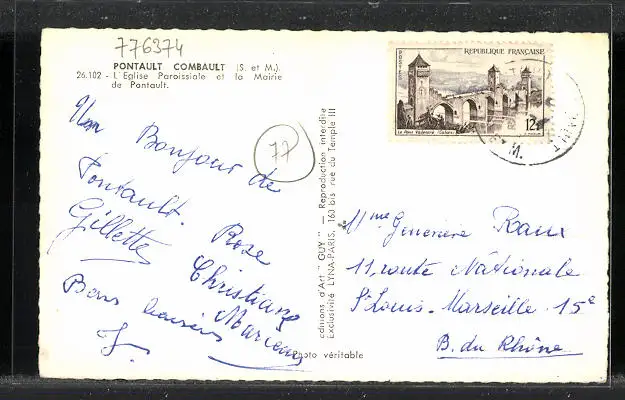 776374
PONTAULT COMBAULT (S. et M.)
26.102 - L'Eglise Paroissiale et la Mairie
de Pontault.
Un Bonjour de
Pontault. Rose
Gillette Christiane
Marceau
Bons baisers
77
editions d'Art "GUY" — Reproduction interdite
Exclusivité LYNA-PARIS, 160 bis rue du Temple III
Photo véritable
POSTES
REPUBLIQUE FRANÇAISE
Le Pont Valentré (Cahors)
12F
Mme Geneviève Raux
11, route Nationale
St Louis - Marseille 15e
B. du Rhône